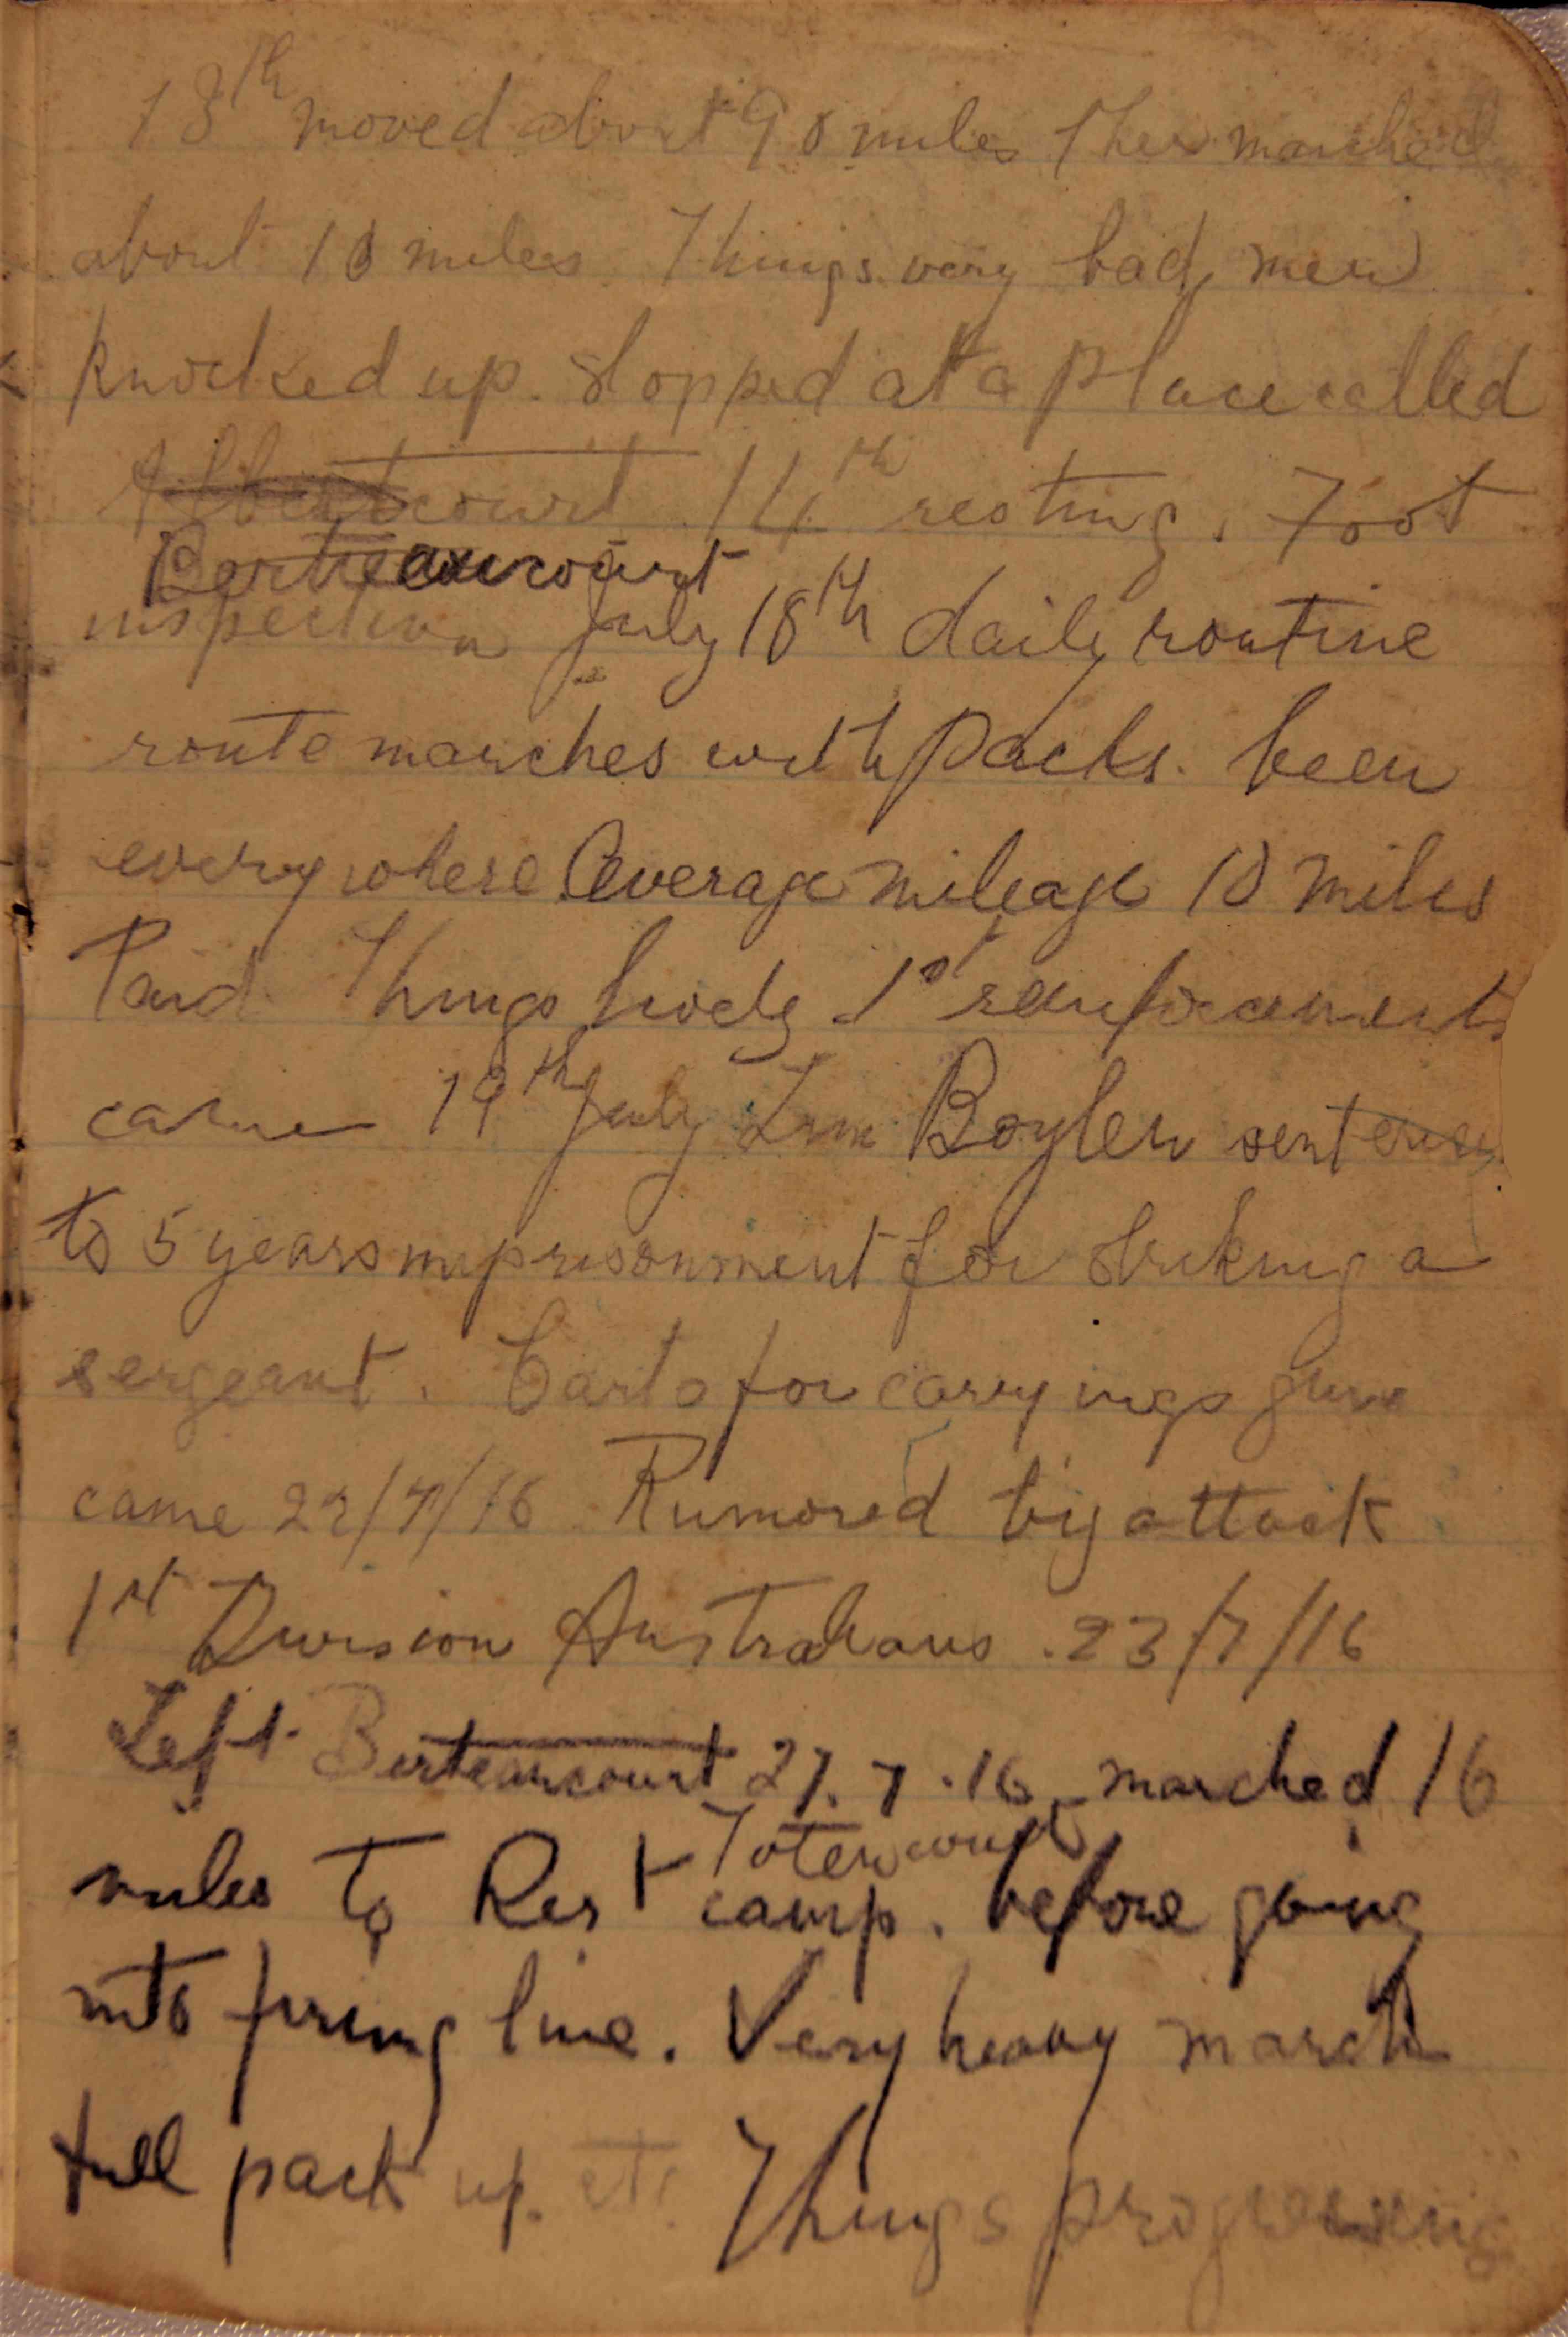 13th moved about 90 miles then marched
about 10 miles Things very bad, men
knocked up. Stopped at a place called
Albertcourt 14th resting. Foot
Berteaucourt
inspection July 18th daily routine
route marches with packs. been
everywhere Average mileage 10 miles
Paid. Things lively 1st reinforcements
came 19th July Boylen sentenced
to 5 years imprisonment for striking a
sergeant. Carts for carrying guns
came 22/7/16 Rumored big attack
1st Division Australians. 23/7/16
Left Berteaucourt 27.7.16 marched 16
Totencourt
miles to Rest camp. before going
into firing line. Very heavy march
full pack up. etc. Things progressing